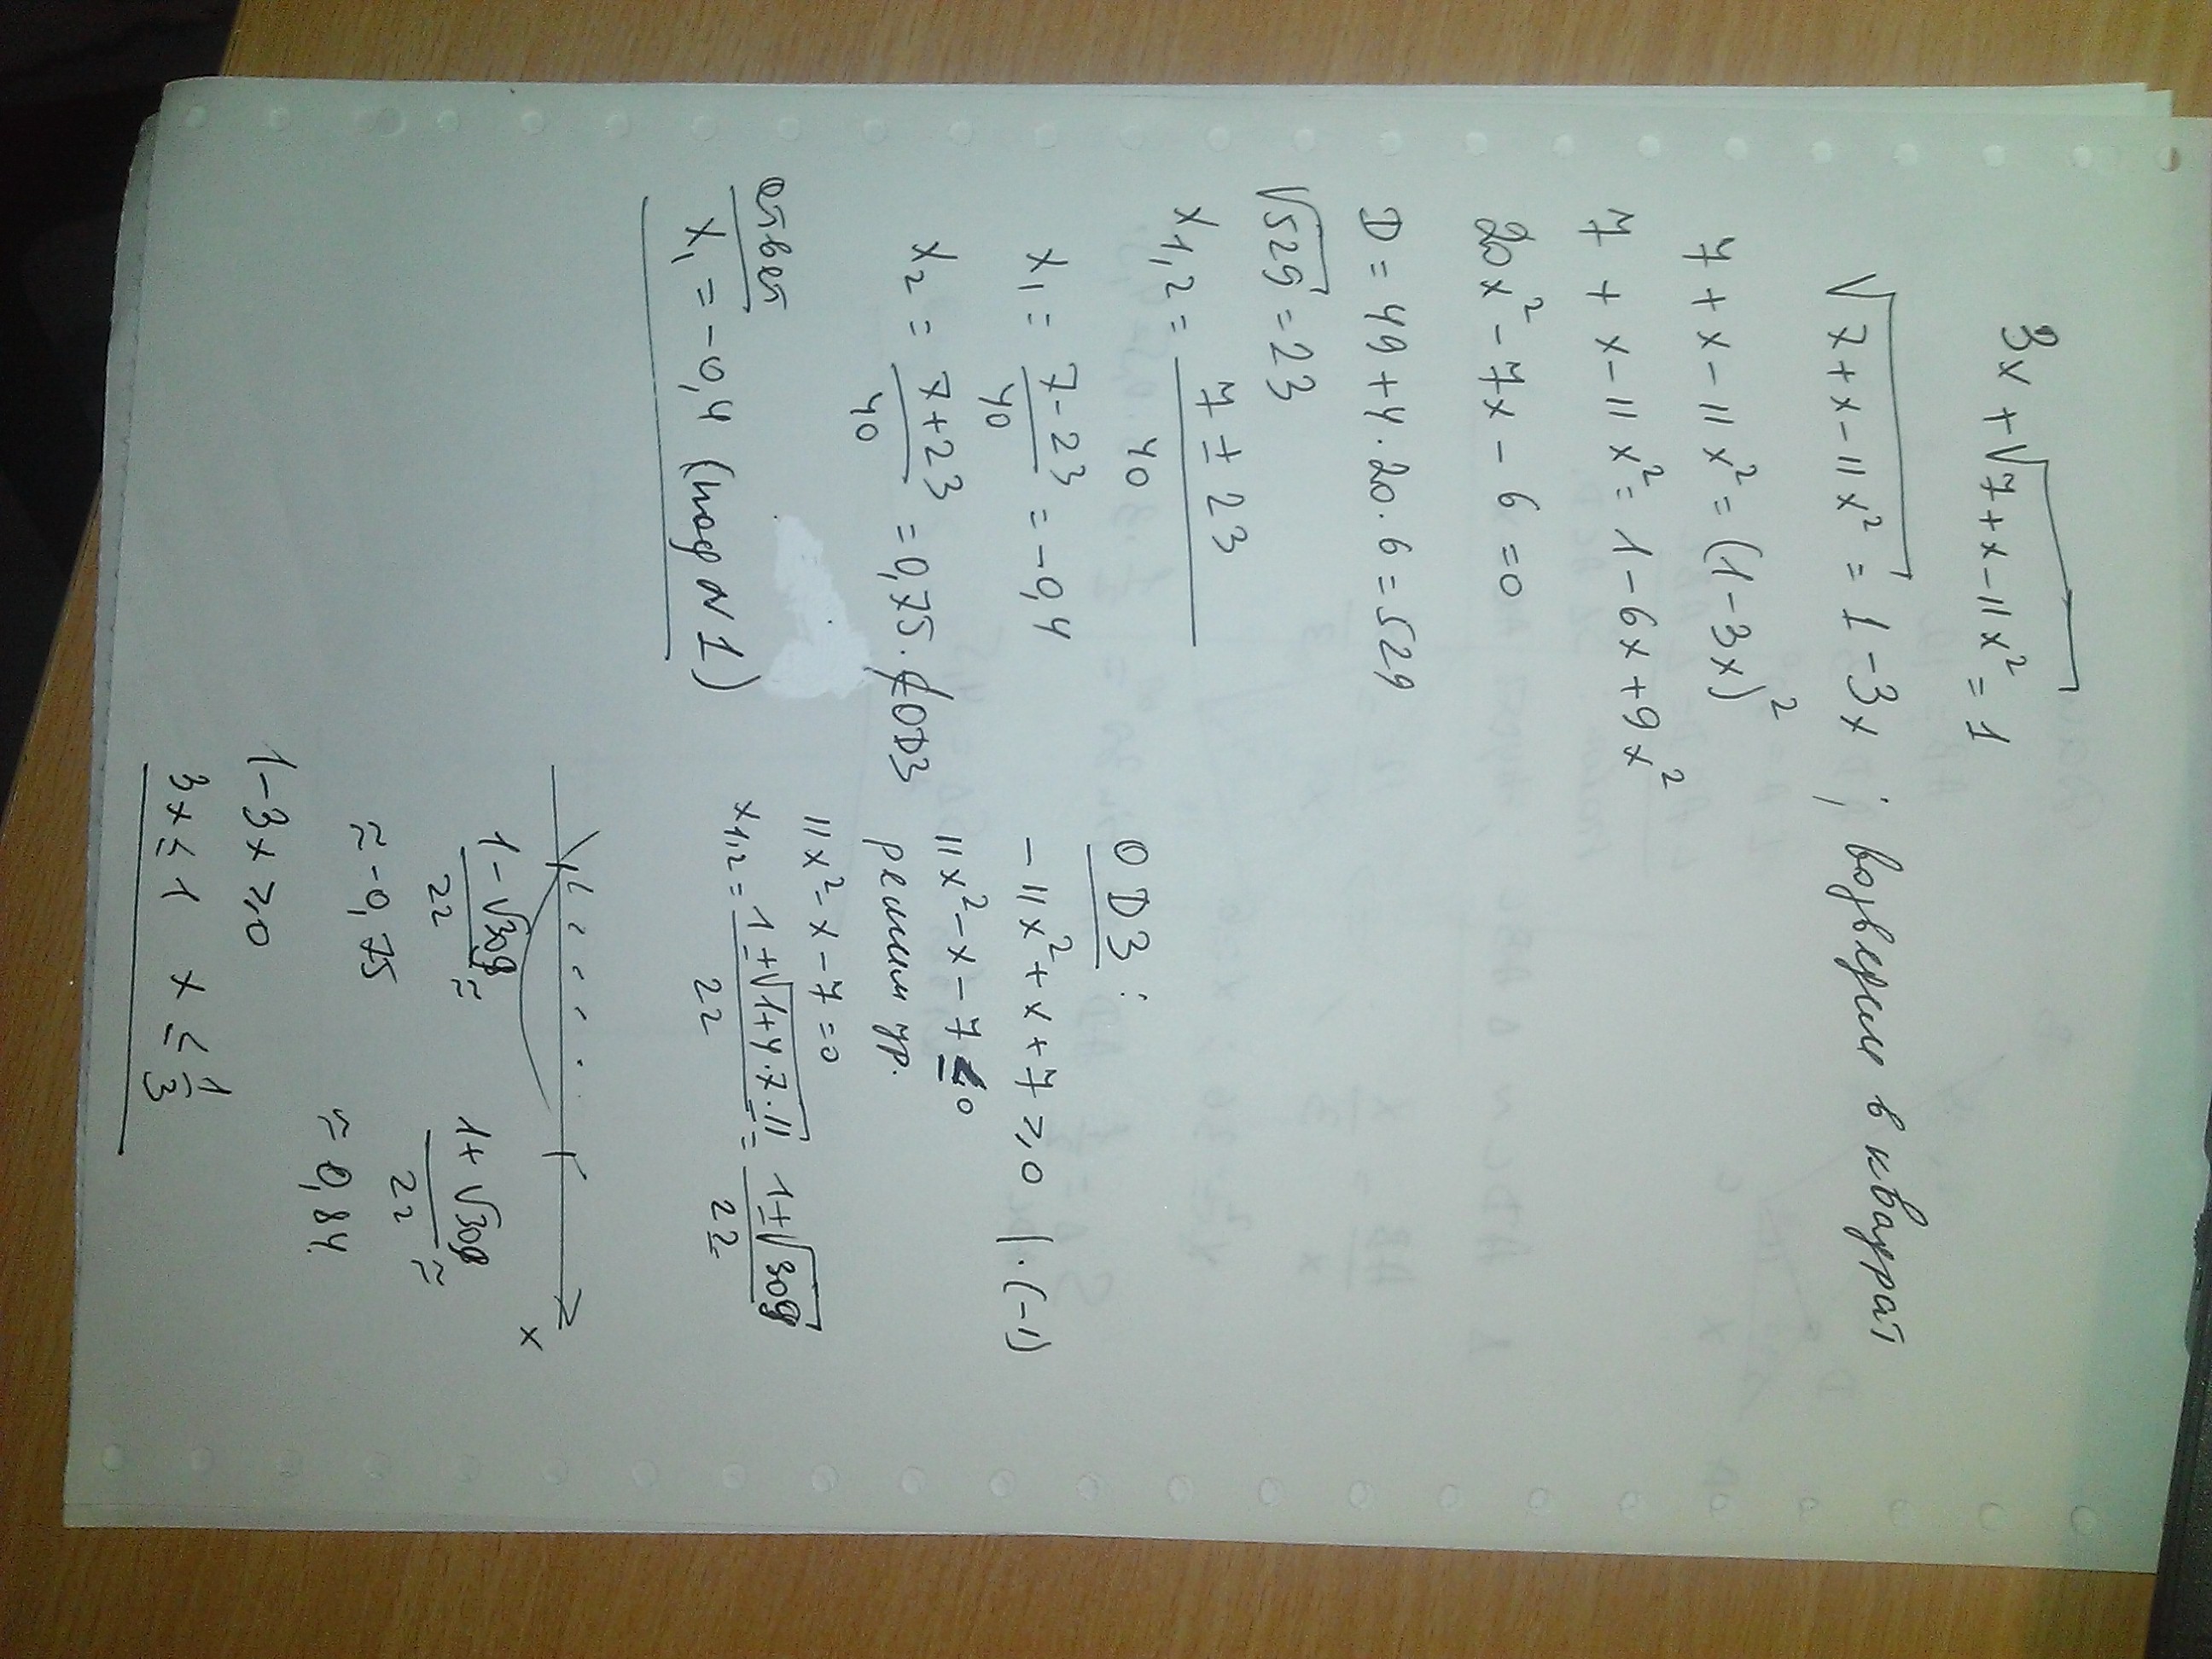 3x + √7+x-11x² = 1
√7+x-11x² = 1-3x; возведем в квадрат
7+x-11x² = (1-3x)²
7+x-11x² = 1-6x+9x²
20x²-7x-6=0
D = 49+4·20·6=529
√529=23
x1,2 = 7±23/40
x1 = 7-23/40 = -0,4
x2 = 7+23/40 = 0,75. ∉ОDЗ
ответ
x1 = -0,4
ОDЗ:
-11x²+x+7≥0 |·(-1)
11x²-x-7≤0
решим ур.
11x²-x-7=0
x1,2 = 1±√1+4·7·11/22 = 1±√309/22
x
1-√309/22 ≈
≈ -0,75
1+√309/22 ≈
≈ 0,84
1-3x≥0
3x≤1 x≤1/3